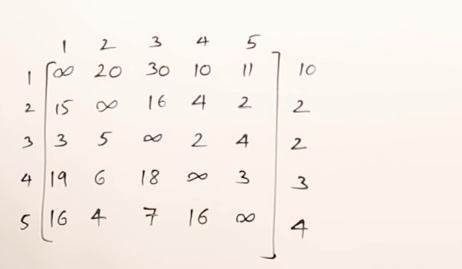 1 2 3 4 5
1 ∞ 20 30 10 11 10
2 15 ∞ 16 4 2 2
3 3 5 ∞ 2 4 2
4 19 6 18 ∞ 3 3
5 16 4 7 16 ∞ 4